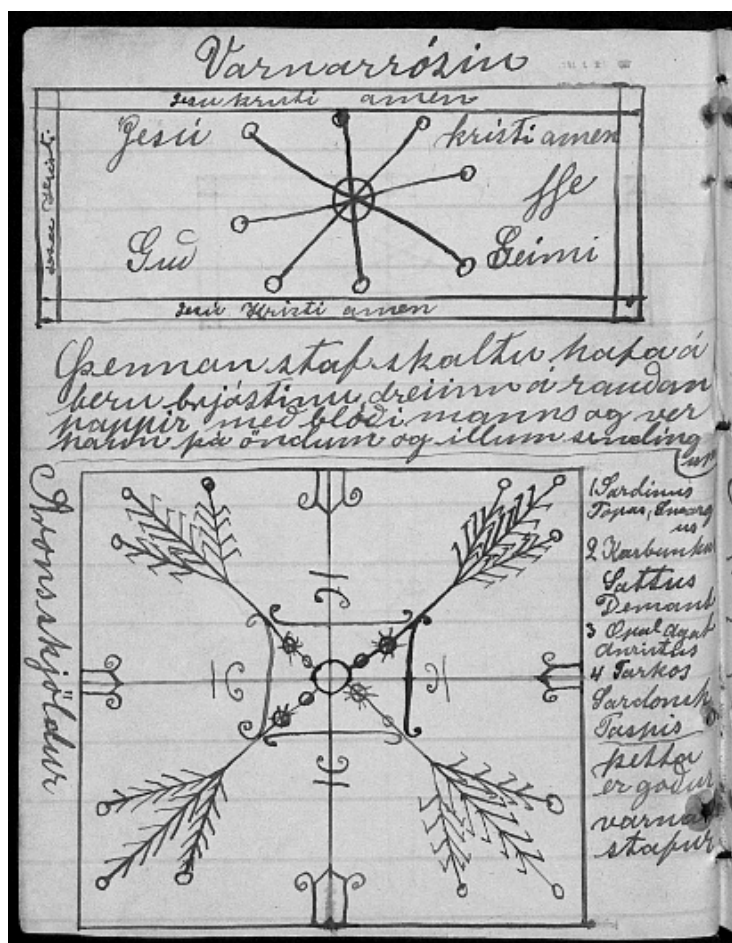 Varnarrósin
Jesu kristi amen
Jesú kristi amen
Jesu Kristi
Guð Geimi
Jesú Kristi amen
Þennan staf skaltu hafa á
beru brjóstinu dreiinn á rauðan
pappir með blóði manns og ver
hann þá öndum og illum sending
um
Aronsskjöldur
1 Sardinus
Topas, Smarg
us
2 Karbunkul
Demant
3 Opal Agat
4 Tarkos
Sardonik
Jaspis
þetta
er goður
varnar
stafur